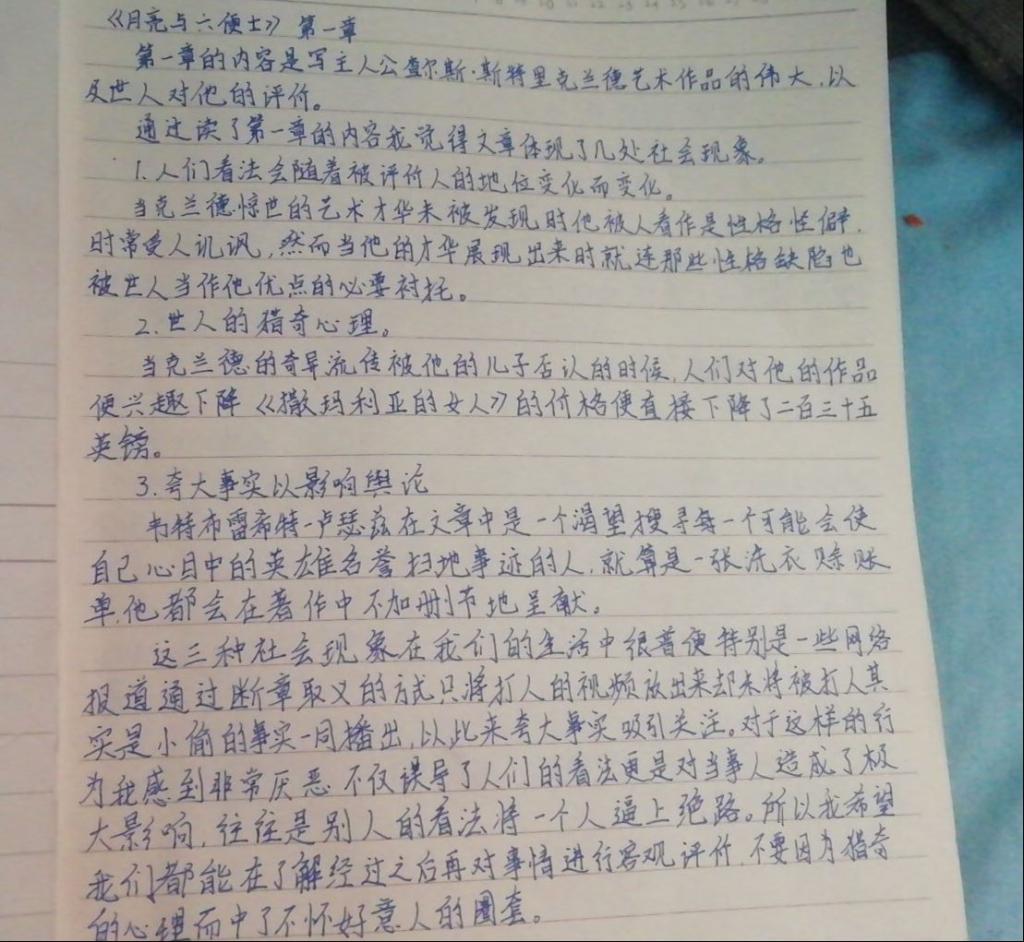 《月亮与六便士》 第一章
第一章的内容是写主人公查尔斯·斯特里克兰德艺术作品的伟大,以
及世人对他的评价。
通过读了第一章的内容我觉得文章体现了几处社会现象。
1.人们看法会随着被评价人的地位变化而变化。
当克兰德惊世的艺术才华未被发现时他被人看作是性格怪僻,
时常受人讥讽,然而当他的才华展现出来时就连那些性格缺陷也
被世人当作他优点的必要衬托。
2.世人的猎奇心理。
当克兰德的奇异流传被他的儿子否认的时候,人们对他的作品
便兴趣下降《撒玛利亚的女人》的价格便直接下降了二百三十五
英镑。
3.夸大事实以影响舆论
韦特布雷希特-卢瑟兹在文章中是一个渴望搜寻每一个可能会使
自己心目中的英雄名誉扫地事迹的人,就算是一张洗衣赊账
单,他都会在著作中不加删节地呈献。
这三种社会现象在我们的生活中很普便特别是一些网络
报道通过断章取义的方式只将打人的视频放出来却未将被打人其
实是小偷的事实一同播出,以此来夸大事实吸引关注。对于这样的行
为我感到非常厌恶 不仅误导了人们的看法更是对当事人造成了极
大影响,往往是别人的看法将一个人逼上绝路。所以我希望
我们都能在了解经过之后再对事情进行客观评价,不要因为猎奇
的心理而中了不怀好意人的圈套。